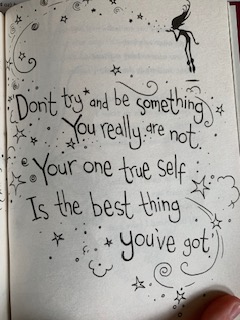 Don't try and be something
You really are not.
Your one true self
Is the best thing
you've got.